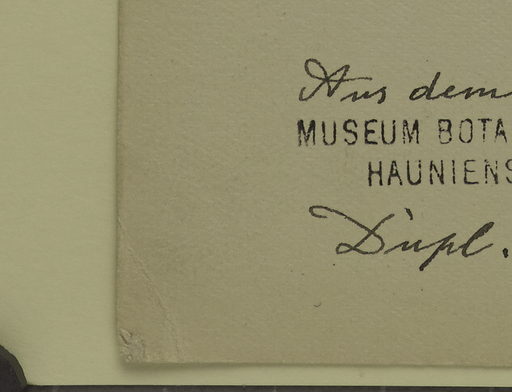 Aus dem
MUSEUM BOTA
HAUNIENS
Dupl.